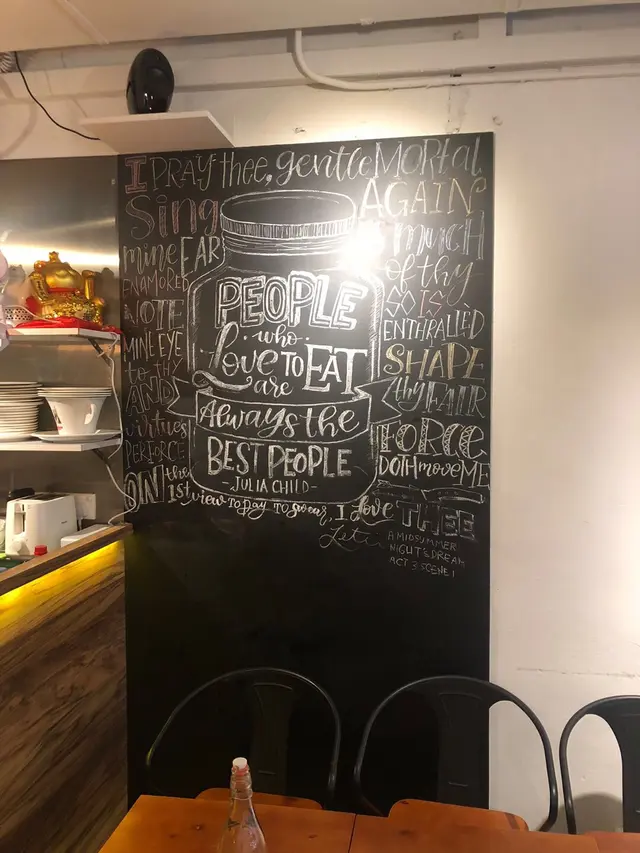 I PRAY thee, gentle MORtal
Sing AGAIN
mine EAR much
ENAMORED of thy
NOTE SO IS
MINE EYE ENTHRALLED
to thy SHAPE
AND thy FAIR
virtues FORCE
PERFORCE DOTH move ME
ON the
1st view to say to swear, I love THEE
PEOPLE
who
Love TO EAT
are
Always the
BEST PEOPLE
- JULIA CHILD -
A MIDSUMMER
NIGHT'S DREAM
ACT 3 SCENE 1